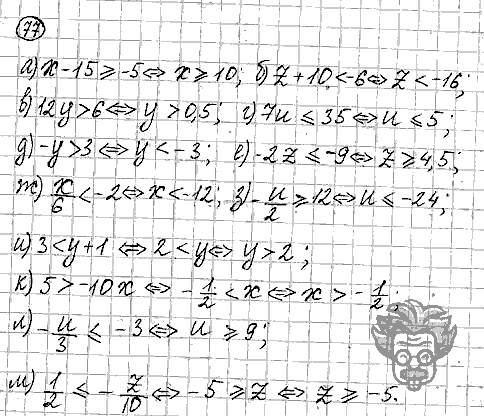 77
а) x - 15 ≥ -5 ⇔ x ≥ 10; б) z + 10 < -6 ⇔ z < -16;
в) 12y > 6 ⇔ y > 0,5; г) 7u ≤ 35 ⇔ u ≤ 5;
д) -y > 3 ⇔ y < -3; е) -2z ≤ -9 ⇔ z ≥ 4,5;
ж) x/6 < -2 ⇔ x < -12; з) -u/2 ≥ 12 ⇔ u ≤ -24;
и) 3 < y + 1 ⇔ 2 < y ⇔ y > 2;
к) 5 > -10x ⇔ -1/2 < x ⇔ x > -1/2;
л) -u/3 ≤ -3 ⇔ u ≥ 9;
м) 1/2 ≤ -z/10 ⇔ -5 ≥ z ⇔ z ≥ -5.